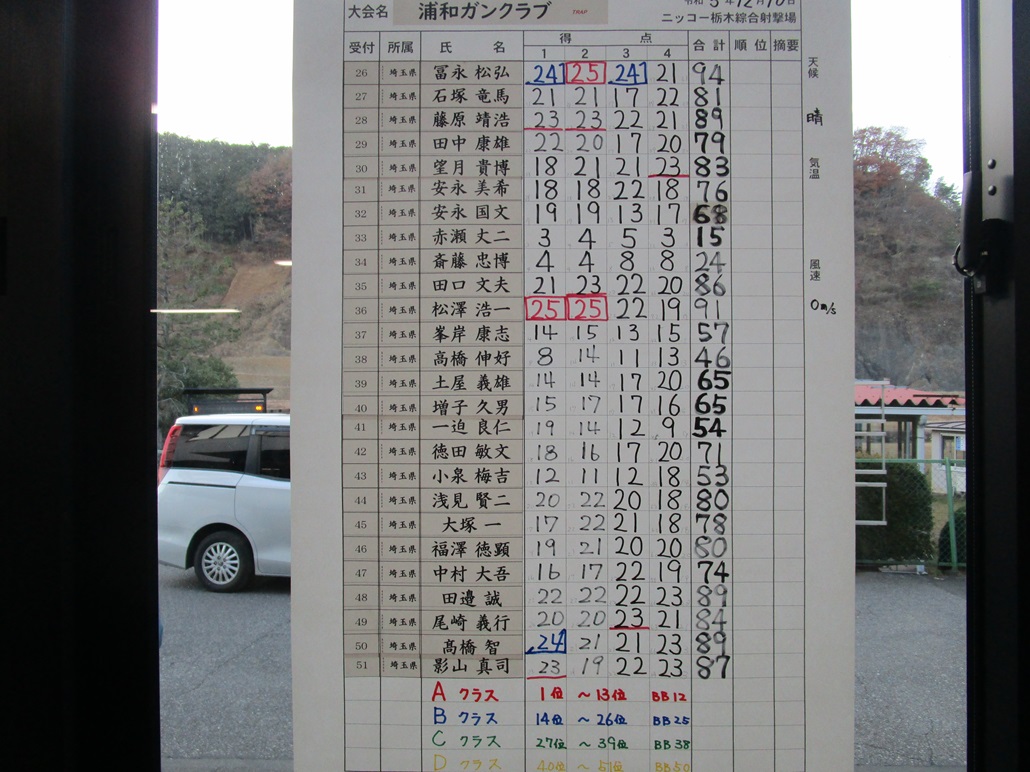 大会名 浦和ガンクラブ TRAP 令和5年12月10日
ニッコー栃木綜合射撃場
受付 所属 氏名 得点 合計 順位 摘要
1 2 3 4
26 埼玉県 冨永 松弘 24 25 24 21 94
27 埼玉県 石塚 竜馬 21 21 17 22 81
28 埼玉県 藤原 靖浩 23 23 22 21 89
29 埼玉県 田中 康雄 22 20 17 20 79
30 埼玉県 望月 貴博 18 21 21 23 83
31 埼玉県 安永 美希 18 18 22 18 76
32 埼玉県 安永 国文 19 19 13 17 68
33 埼玉県 赤瀬 丈二 3 4 5 3 15
34 埼玉県 斎藤 忠博 4 4 8 8 24
35 埼玉県 田口 文夫 21 23 22 20 86
36 埼玉県 松澤 浩一 25 25 22 19 91
37 埼玉県 峯岸 康志 14 15 13 15 57
38 埼玉県 高橋 伸好 8 14 11 13 46
39 埼玉県 土屋 義雄 14 14 17 20 65
40 埼玉県 増子 久男 15 17 17 16 65
41 埼玉県 一迫 良仁 19 14 12 9 54
42 埼玉県 徳田 敏文 18 16 17 20 71
43 埼玉県 小泉 梅吉 12 11 12 18 53
44 埼玉県 浅見 賢二 20 22 20 18 80
45 埼玉県 大塚 一 17 22 21 18 78
46 埼玉県 福澤 徳顕 19 21 20 20 80
47 埼玉県 中村 大吾 16 17 22 19 74
48 埼玉県 田邉 誠 22 22 22 23 89
49 埼玉県 尾崎 義行 20 20 23 21 84
50 埼玉県 髙橋 智 24 21 21 23 89
51 埼玉県 影山 真司 23 19 22 23 87
A クラス 1位 ～ 13位 BB12
B クラス 14位 ～ 26位 BB25
C クラス 27位 ～ 39位 BB38
D クラス 40位 ～ 51位 BB50
天候
晴
気温
風速
0m/s